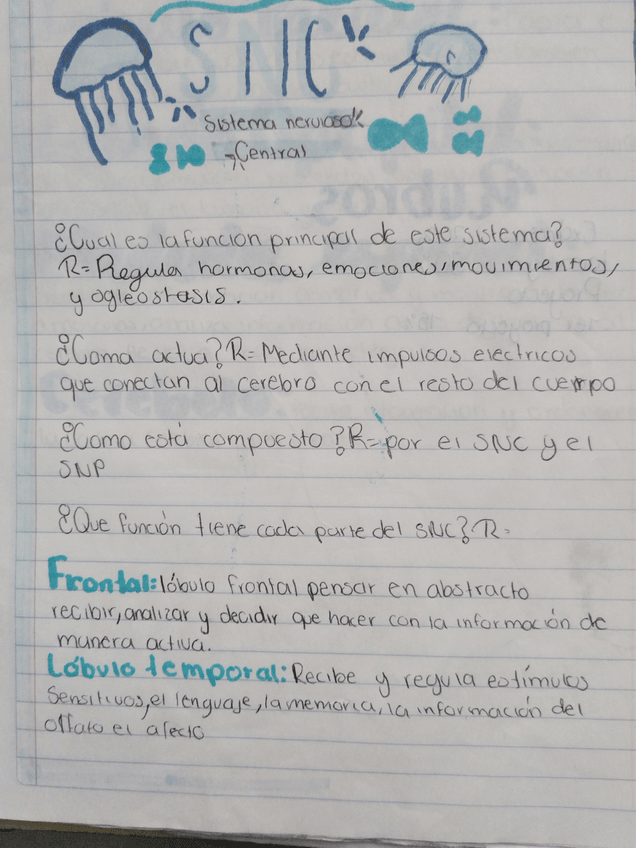 SNC
Sistema nervioso
Central
¿Cual es la función principal de este sistema?
R= Regula hormonas, emociones, movimientos,
y ogleostasis.
¿Coma actua? R= Mediante impulsos electricos
que conectan al cerebro con el resto del cuerpo
¿Como está compuesto? R= por el SNC y el
SNP
¿Que función tiene cada parte del SNC? R=
Frontal: lóbulo frontal pensar en abstracto
recibir, analizar y decidir que hacer con la información de
manera activa.
Lóbulo temporal: Recibe y regula estímulos
Sensitivos, el lenguaje, la memoria, la información del
olfato el afecto